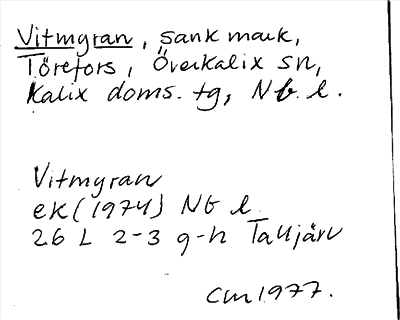 Vitmyran, sank mark,
Törefors, Överkalix sn,
Kalix doms. tg, Nb. l.
Vitmyran
ek (1974) Nb l
26 L 2-3 g-h Talljärv
CM 1977.